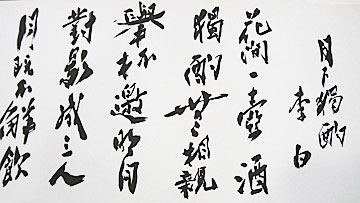 月下獨酌
李白
花間一壺酒
獨酌無相親
舉杯邀明月
對影成三人
月既不解飲